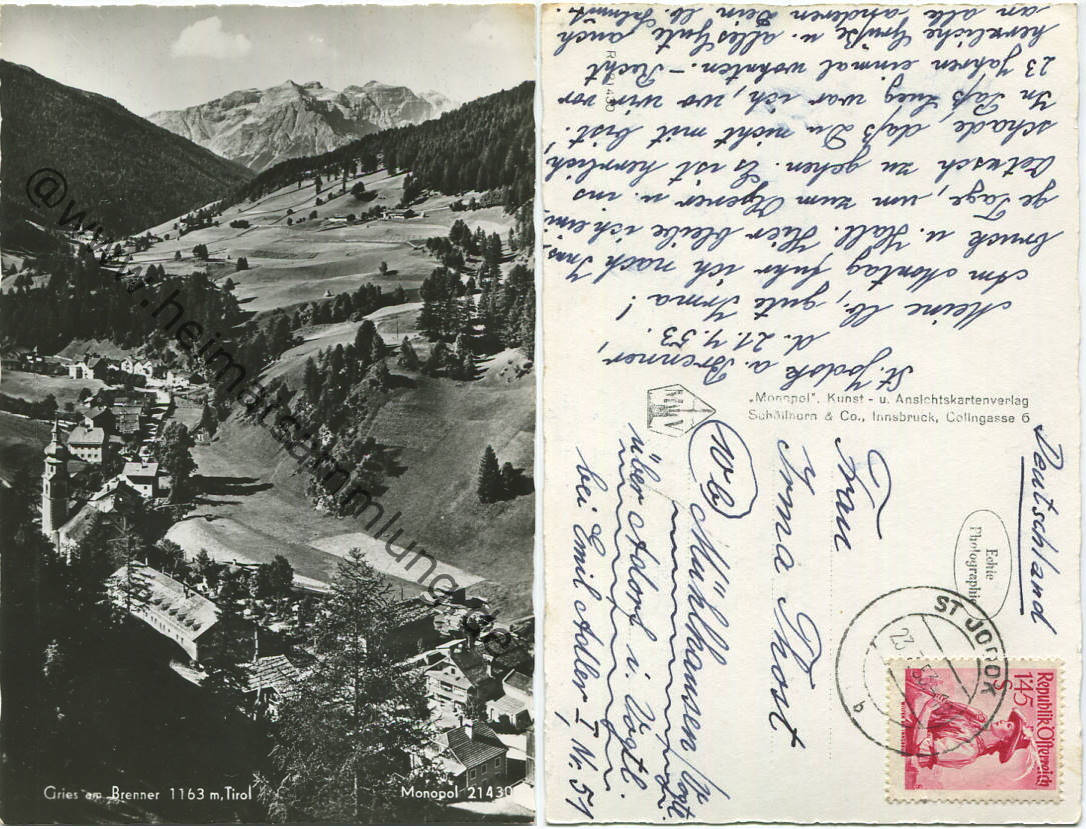 @www.heimatsammlung.de
Gries am Brenner 1163 m, Tirol
Monopol 21430
St. Jodok a. Brenner,
d. 21.7.53.
Meine lb., gute Irma!
Am Montag fuhr ich nach Inns-
bruck u. Hall. Hier bleibe ich eini-
ge Tage, um zum Olperer u. ins
zu gehen. Es ist herrlich
schade, daß Du nicht mit bist!
In war ich, wo wir vor
23 Jahren einmal wohnten. – Recht
herzliche Grüße u. alles Gute auch
an alle anderen Dein lb.
"Monopol", Kunst- u. Ansichtskartenverlag
Schöllhorn & Co., Innsbruck, Colingasse 6
Echte
Photographie
ST JODOK
b
Republik Österreich
1.45
S
Deutschland
Frau
Irma Thost
Mühlhausen
über Adorf i. Vogtl.
bei Emil Adler I, Nr. 51